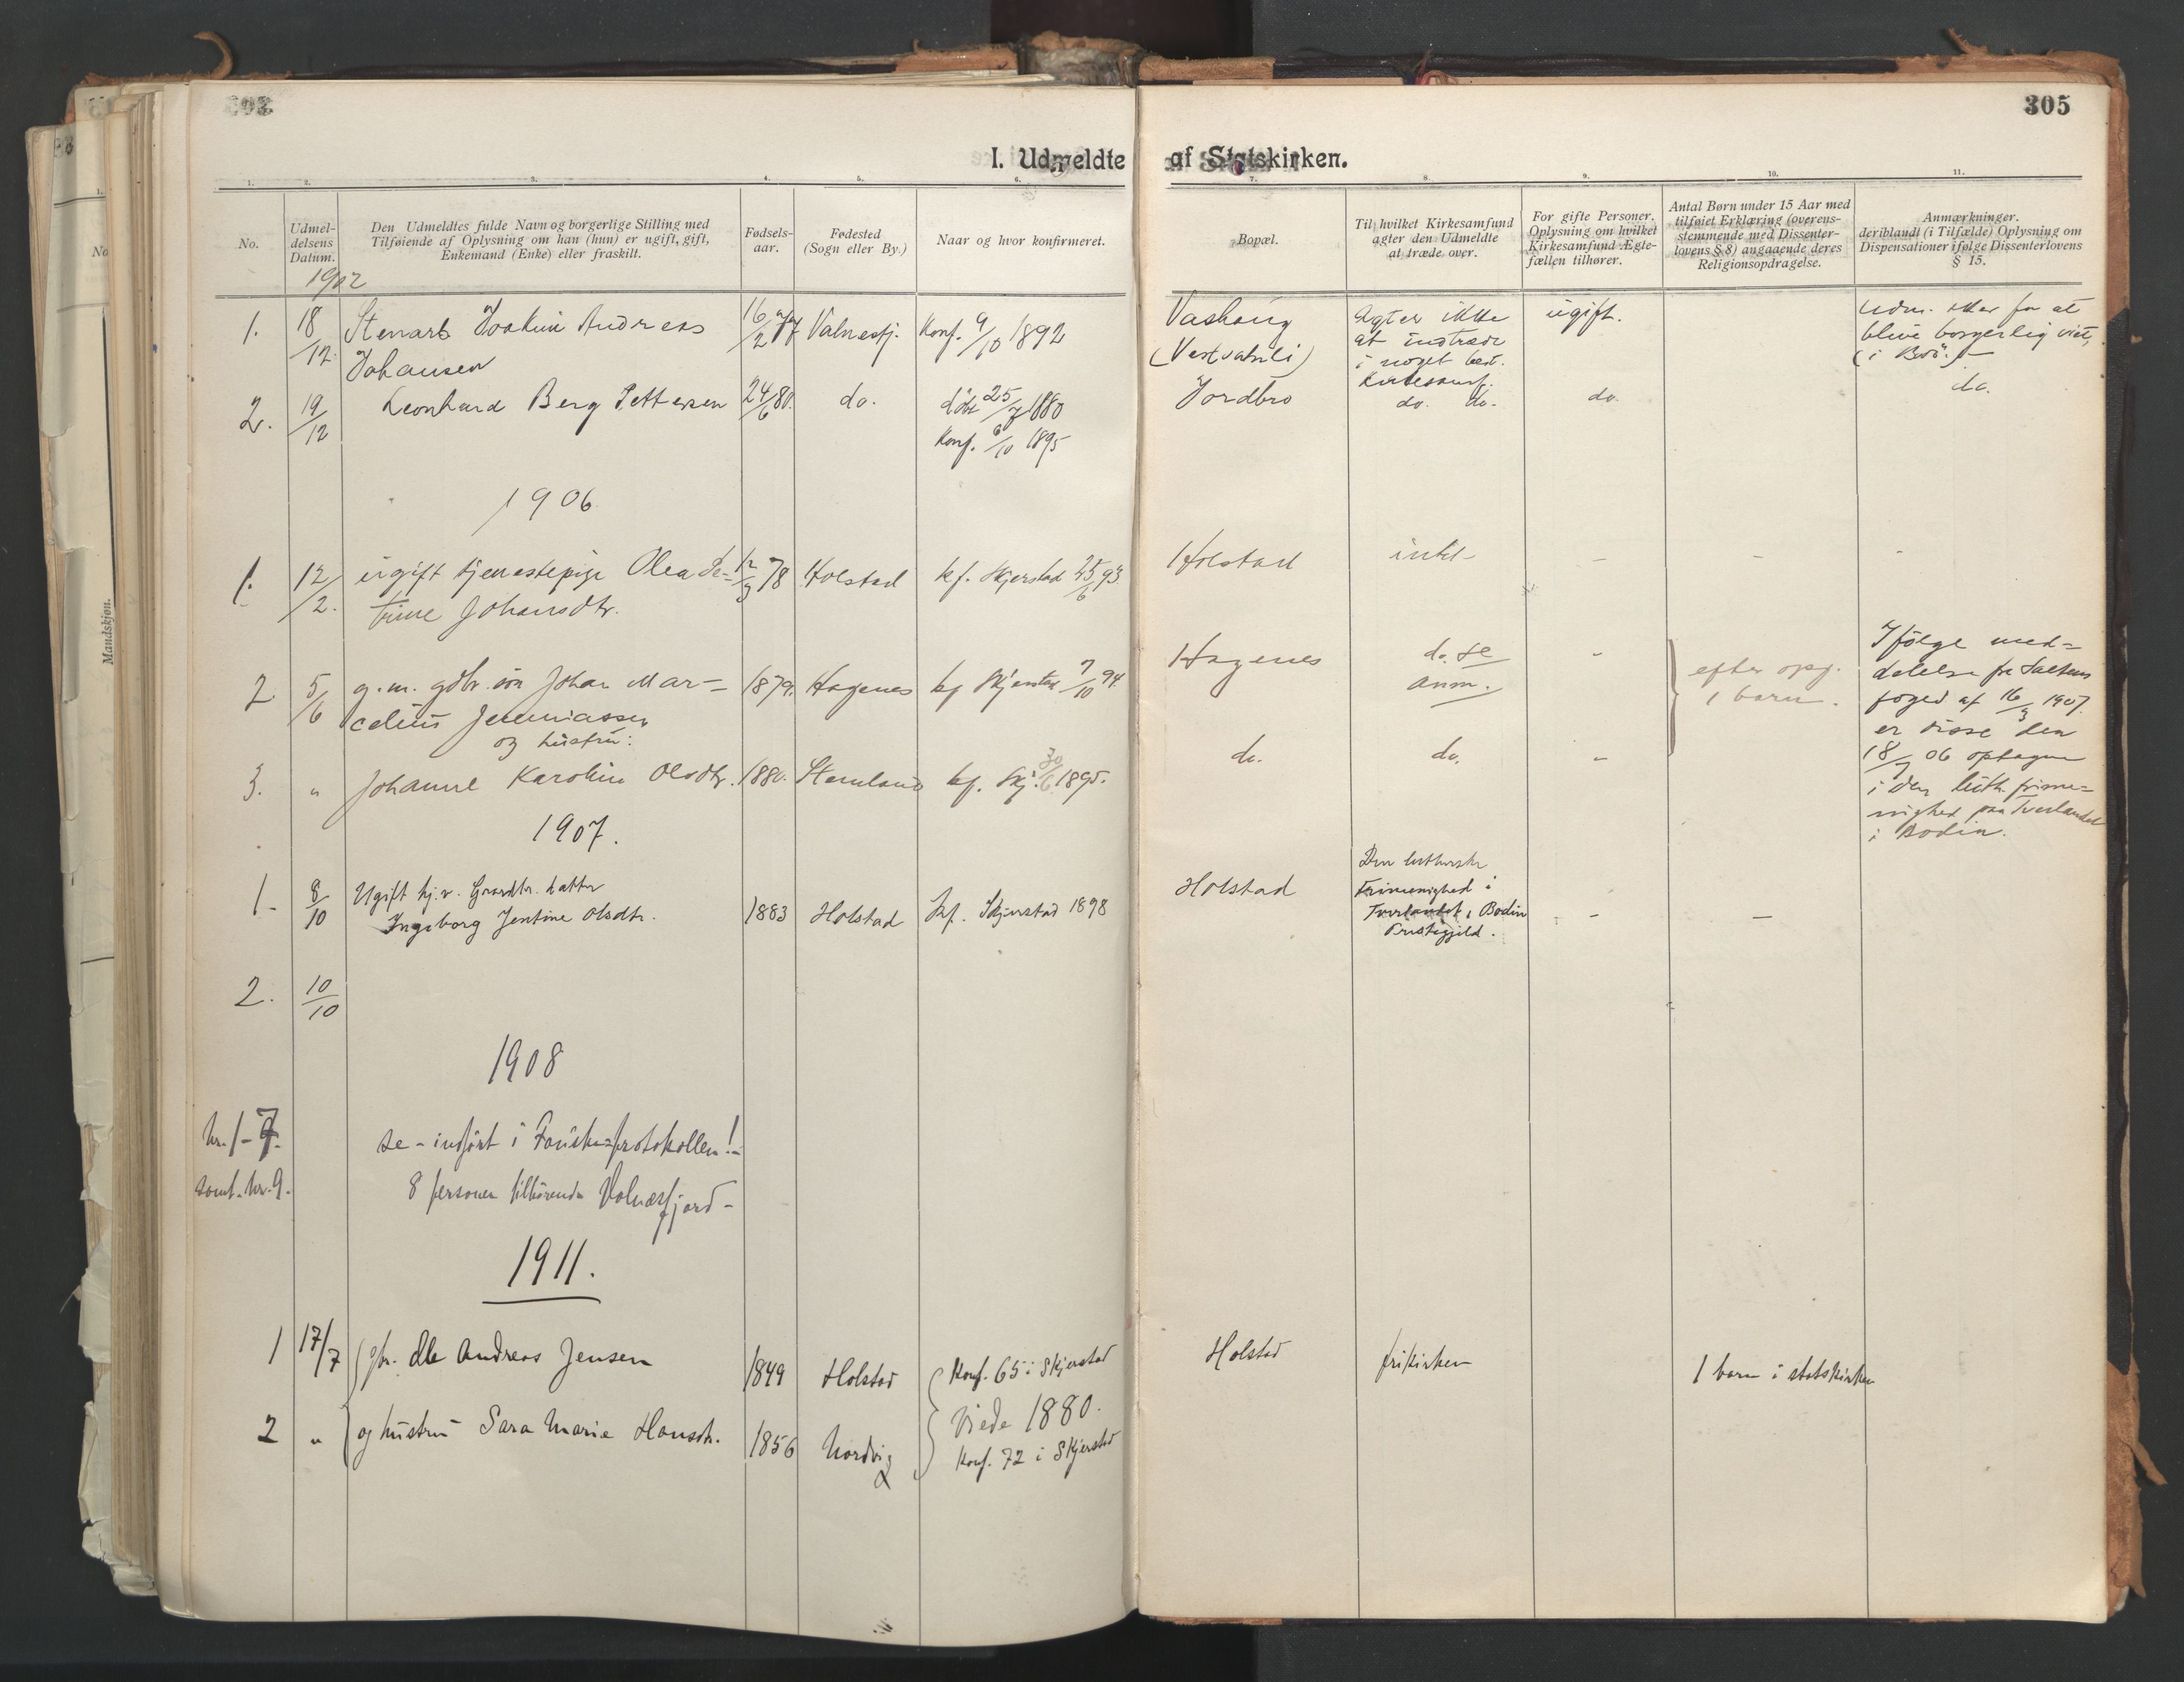 303
305
I. Udmeldte af Statskirken.
1. 2. 3. 4. 5. 6. 7. 8. 9. 10. 11.
No.
Udmel-
delsens
Datum.
Den Udmeldtes fulde Navn og borgerlige Stilling med
Tilføiende af Oplysning om han (hun) er ugift, gift,
Enkemand (Enke) eller fraskilt.
Fødsels-
aar.
Fødested
(Sogn eller By.)
Naar og hvor konfirmeret.
Bopæl.
Til hvilket Kirkesamfund
agter den Udmeldte
at træde over.
For gifte Personer.
Oplysning om hvilket
Kirkesamfund Ægte-
fællen tilhører.
Antal Børn under 15 Aar med
tilføiet Erklæring (overens-
stemmende med Dissenter-
lovens § 8) angaaende deres
Religionsopdragelse.
Anmærkninger.
deriblandt (i Tilfælde) Oplysning om
Dispensationer ifølge Dissenterlovens
§ 15.
1902
1. 18/12. Joakim Andreas
Johansen
16/2 77 Valnesfj. Konf. 9/10 1892
(Vestvatnli)
Agter ikke
at indtræde
i noget best.
Kirkesamf.
ugift.
for at
blive borgerlig viet,
2. 19/12 Leonhard Berg Pettersen 24/6 80. do.
døbt 25/7 1880
Konf. 6/10 1895
Jordbro do. do. do. do.
1906
1. 12/2. ugift tjenestepige Olea Pe=
trine Johansdtr.
12/3 78 Holstad kf. Skjerstad 25/6 93.
Holstad intet - - - -
2 5/6 g. m. gdbr. søn Johan Mar=
celius Jeremiassen
og hustru:
1879. Hagenes kf Skjerstad 7/10 94.
Hagenes do. se
anm. -
efter opg.
1 barn.
Ifølge med=
delelse fra Saltens
foged af 16/3 1907.
er disse den
18/7 06 optagne
i den luth. frime=
nighed paa Tverlandet
i Bodin.
3. " Johanne Karoline Olsdtr. 1880. kf. Skj. 30/6 1895.
do. do. -
1907.
1 - 8/10 Ugift hj.v. Gaardbr. datter
Ingeborg Jentine Olsdtr.
1883 Holstad kf. Skjerstad 1898
Holstad
Den lutherske
Frimenighed i
Tverlandet, Bodin
Prestegjeld.
- -
2. 10/10
1908
nr. 1-7.
samt. nr. 9.
se - indført i Fauske=protokollen!-
8 personer tilhørende Valnesfjord -
1911.
1 17/7 gbr. Ole Andreas Jensen 1849 Holstad Konf. 65 i Skjerstad
Holstad frikirken 1 barn i statskirken
Viede 1880.
2 " og hustru Sara Marie Hansdtr. 1856 Nordvig Konf. 72 i Skjerstad
Mandskjøn.